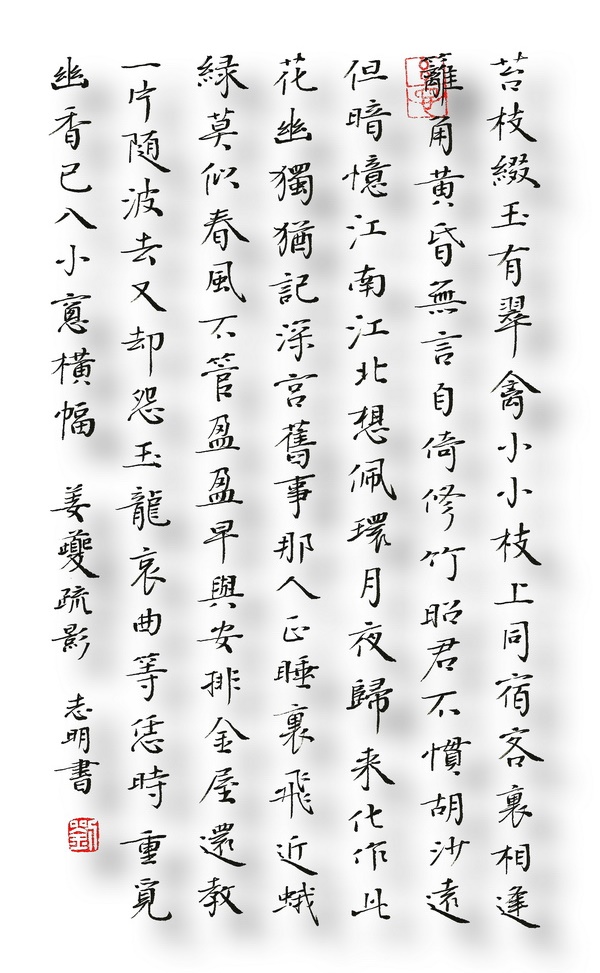 苔枝綴玉有翠禽小小枝上同宿客裏相逢
籬角黄昏無言自倚修竹昭君不慣胡沙遠
但暗憶江南江北想佩環月夜歸来化作此
花幽獨猶記深宫舊事那人正睡裏飛近蛾
緑莫似春風不管盈盈早與安排金屋還教
一片随波去又却怨玉龍哀曲等恁時重覓
幽香已入小窻橫幅 姜夔疏影 志明書
劉